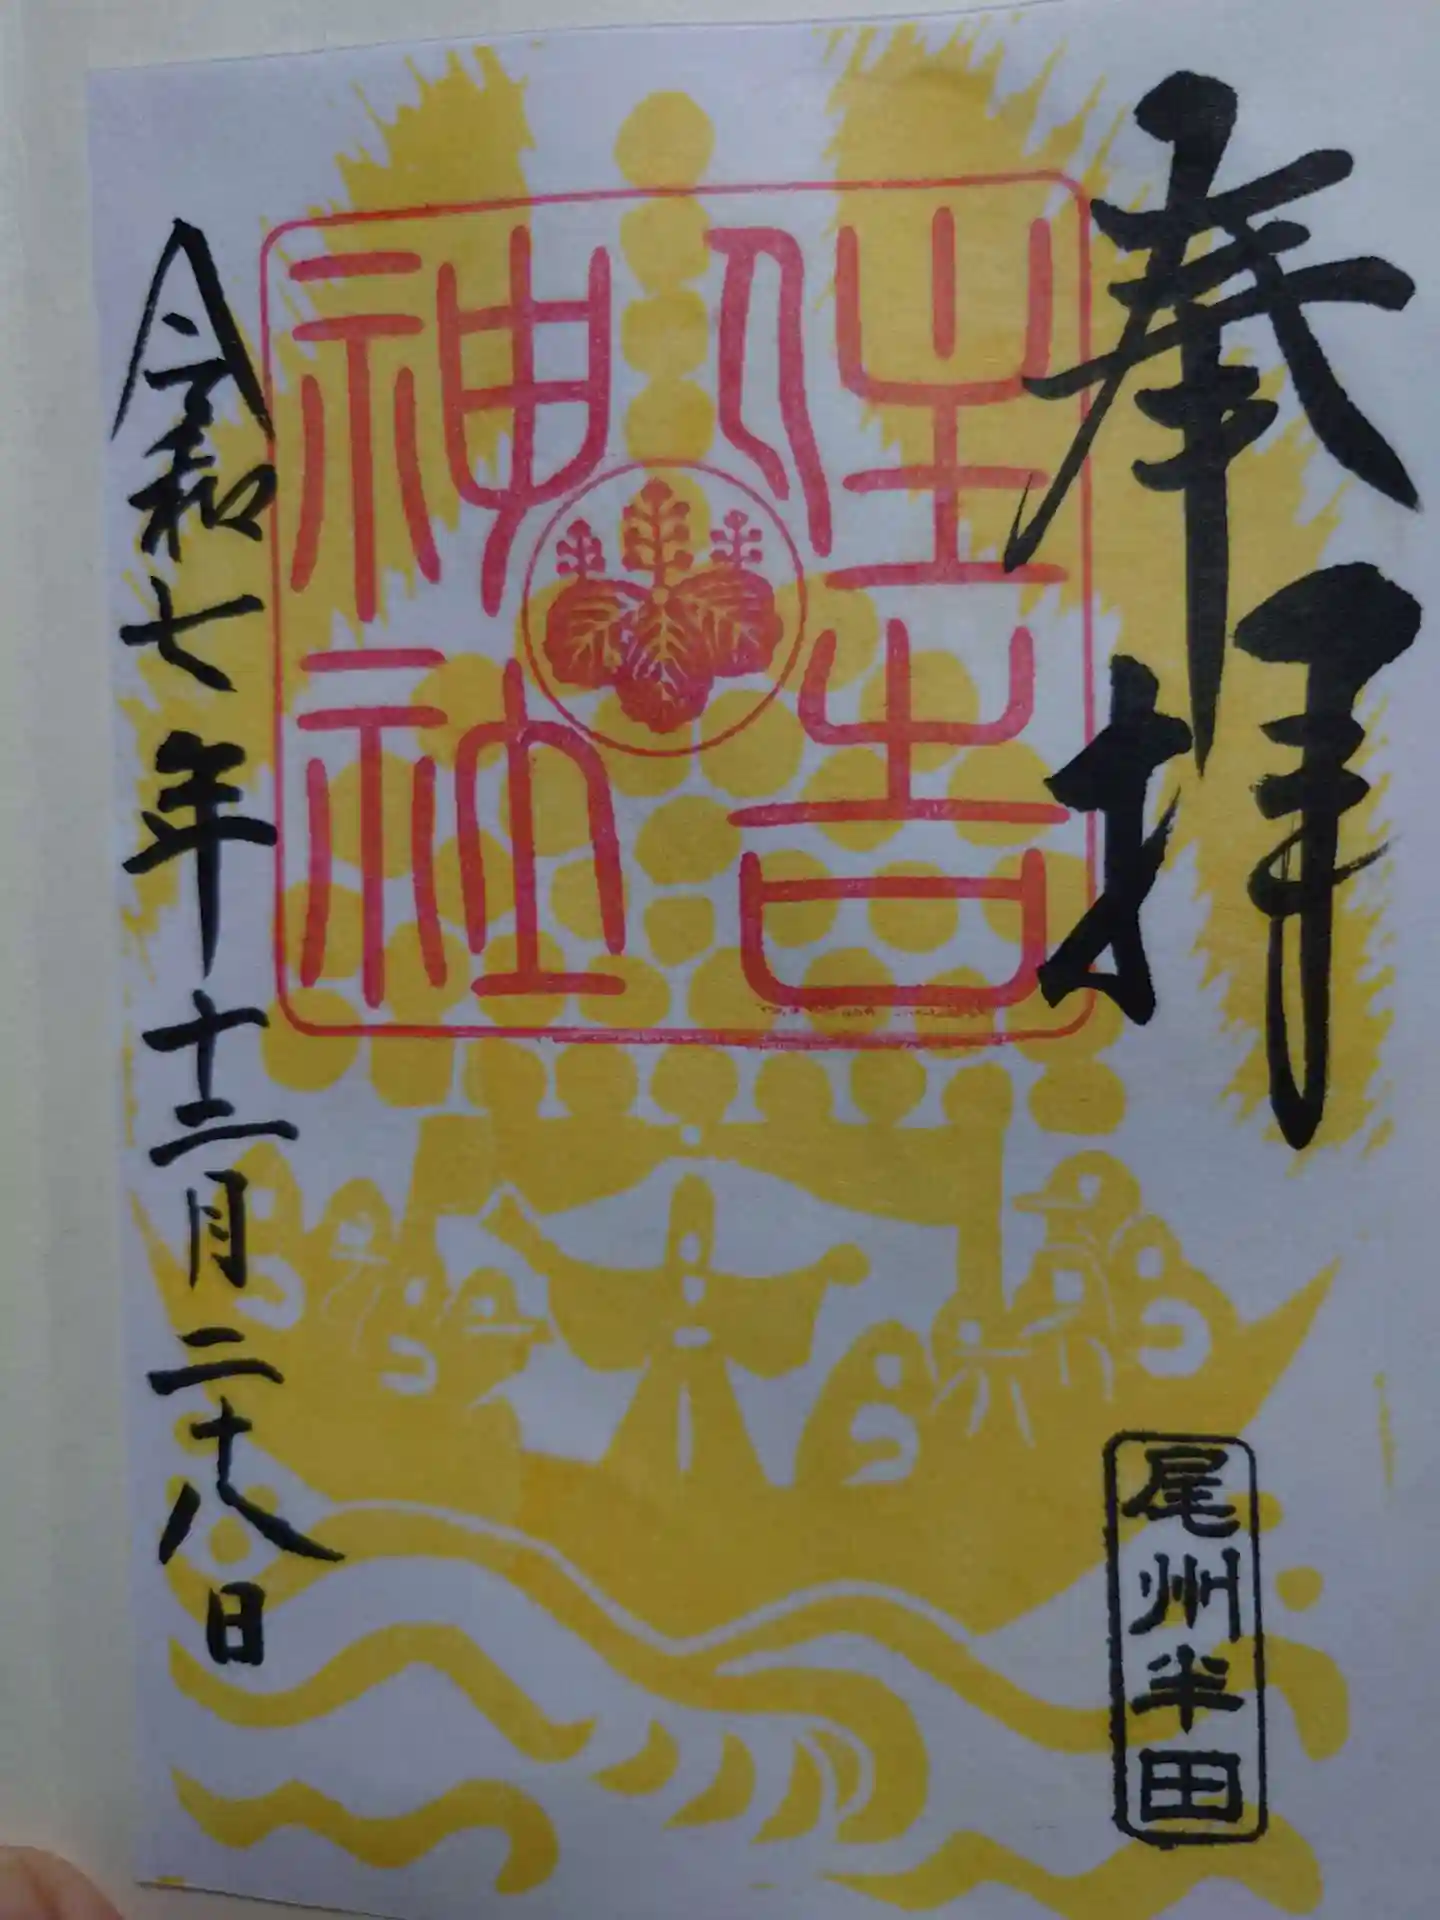 奉拝
住吉
神社
尾州半田
令和七年十二月二十八日